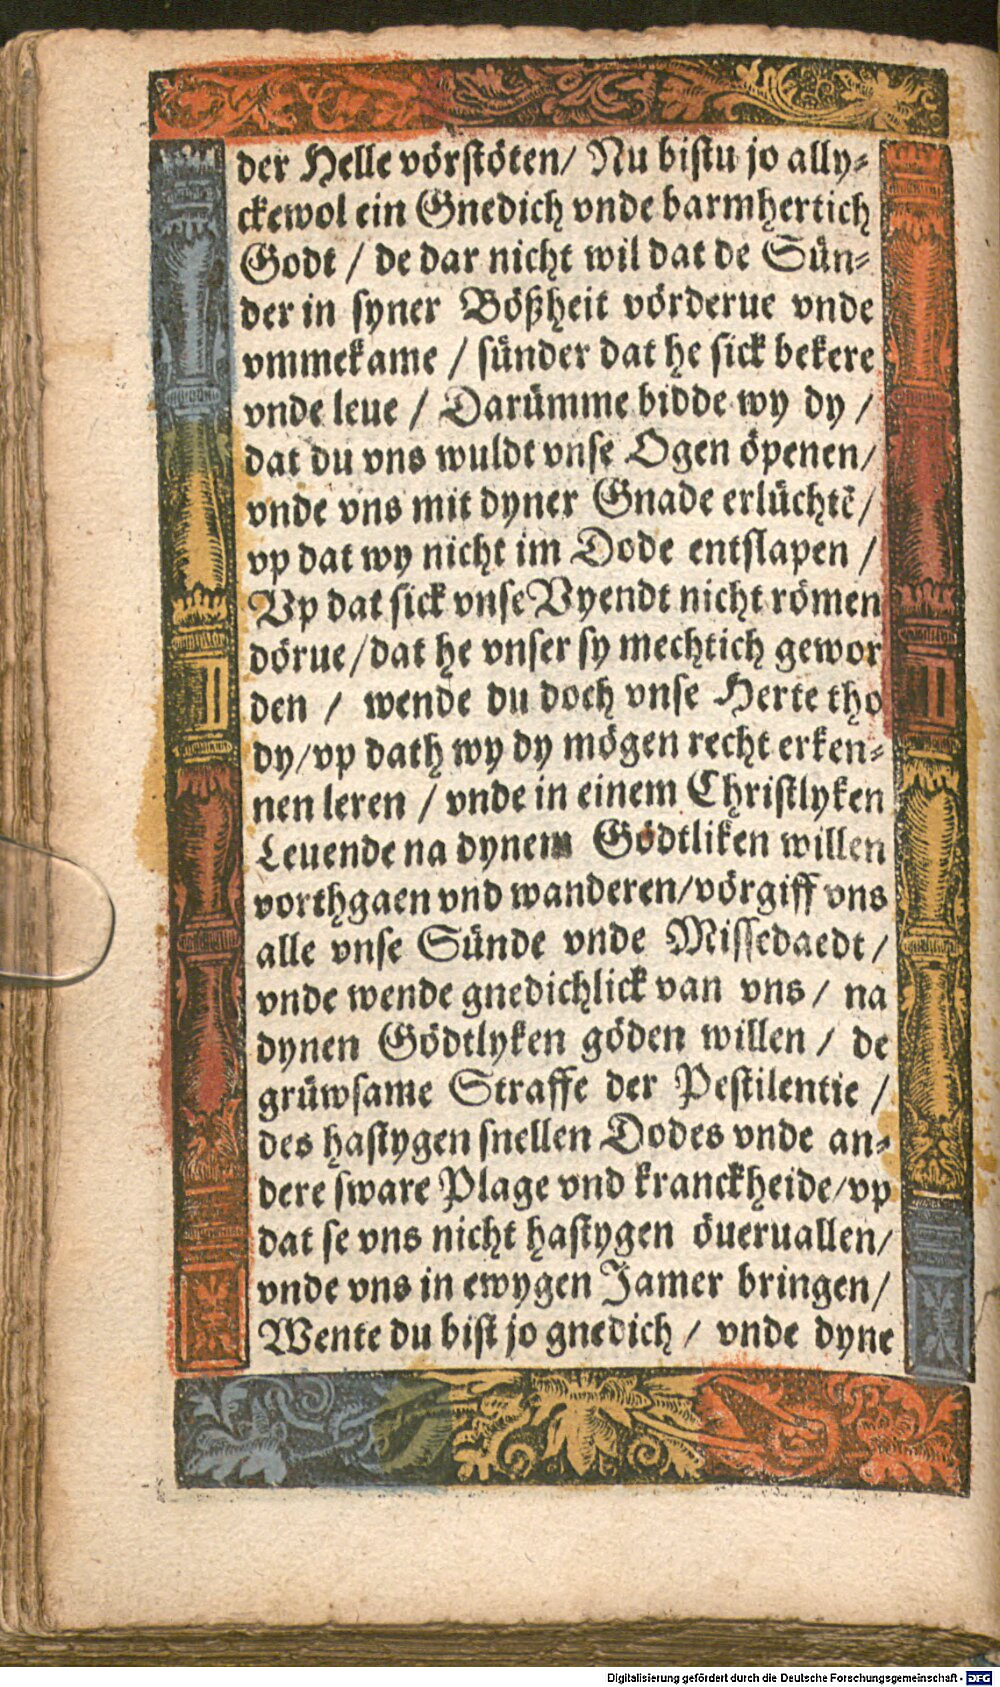 der Helle vörstöten/ Nu bistu jo ally⸗
ckewol ein Gnedich vnde barmhertich
Godt / de dar nicht wil dat de Sün⸗
der in syner Bößheit vörderue vnde
vmmekame / sünder dat he sick bekere
vnde leue / Darümme bidde wy dy /
dat du vns wuldt vnse Ogen öpenen/
vnde vns mit dyner Gnade erlüchtē/
vp dat wy nicht im Dode entslapen /
Vp dat sick vnse Vyendt nicht römen
dörue/dat he vnser sy mechtich gewor
den / wende du doch vnse Herte tho
dy/vp dath wy dy mögen recht erken⸗
nen leren / vnde in einem Christlyken
Leuende na dynem Gödtliken willen
vorthgaen vnd wanderen/vörgiff vns
alle vnse Sünde vnde Missedaedt /
vnde wende gnedichlick van vns / na
dynen Gödtlyken göden willen / de
grüwsame Straffe der Pestilentie /
des hastygen snellen Dodes vnde an⸗
dere sware Plage vnd kranckheide/vp
dat se vns nicht hastygen öueruallen/
vnde vns in ewygen Jamer bringen/
Wente du bist jo gnedich / vnde dyne
Digitalisierung gefördert durch die Deutsche Forschungsgemeinschaft - DFG